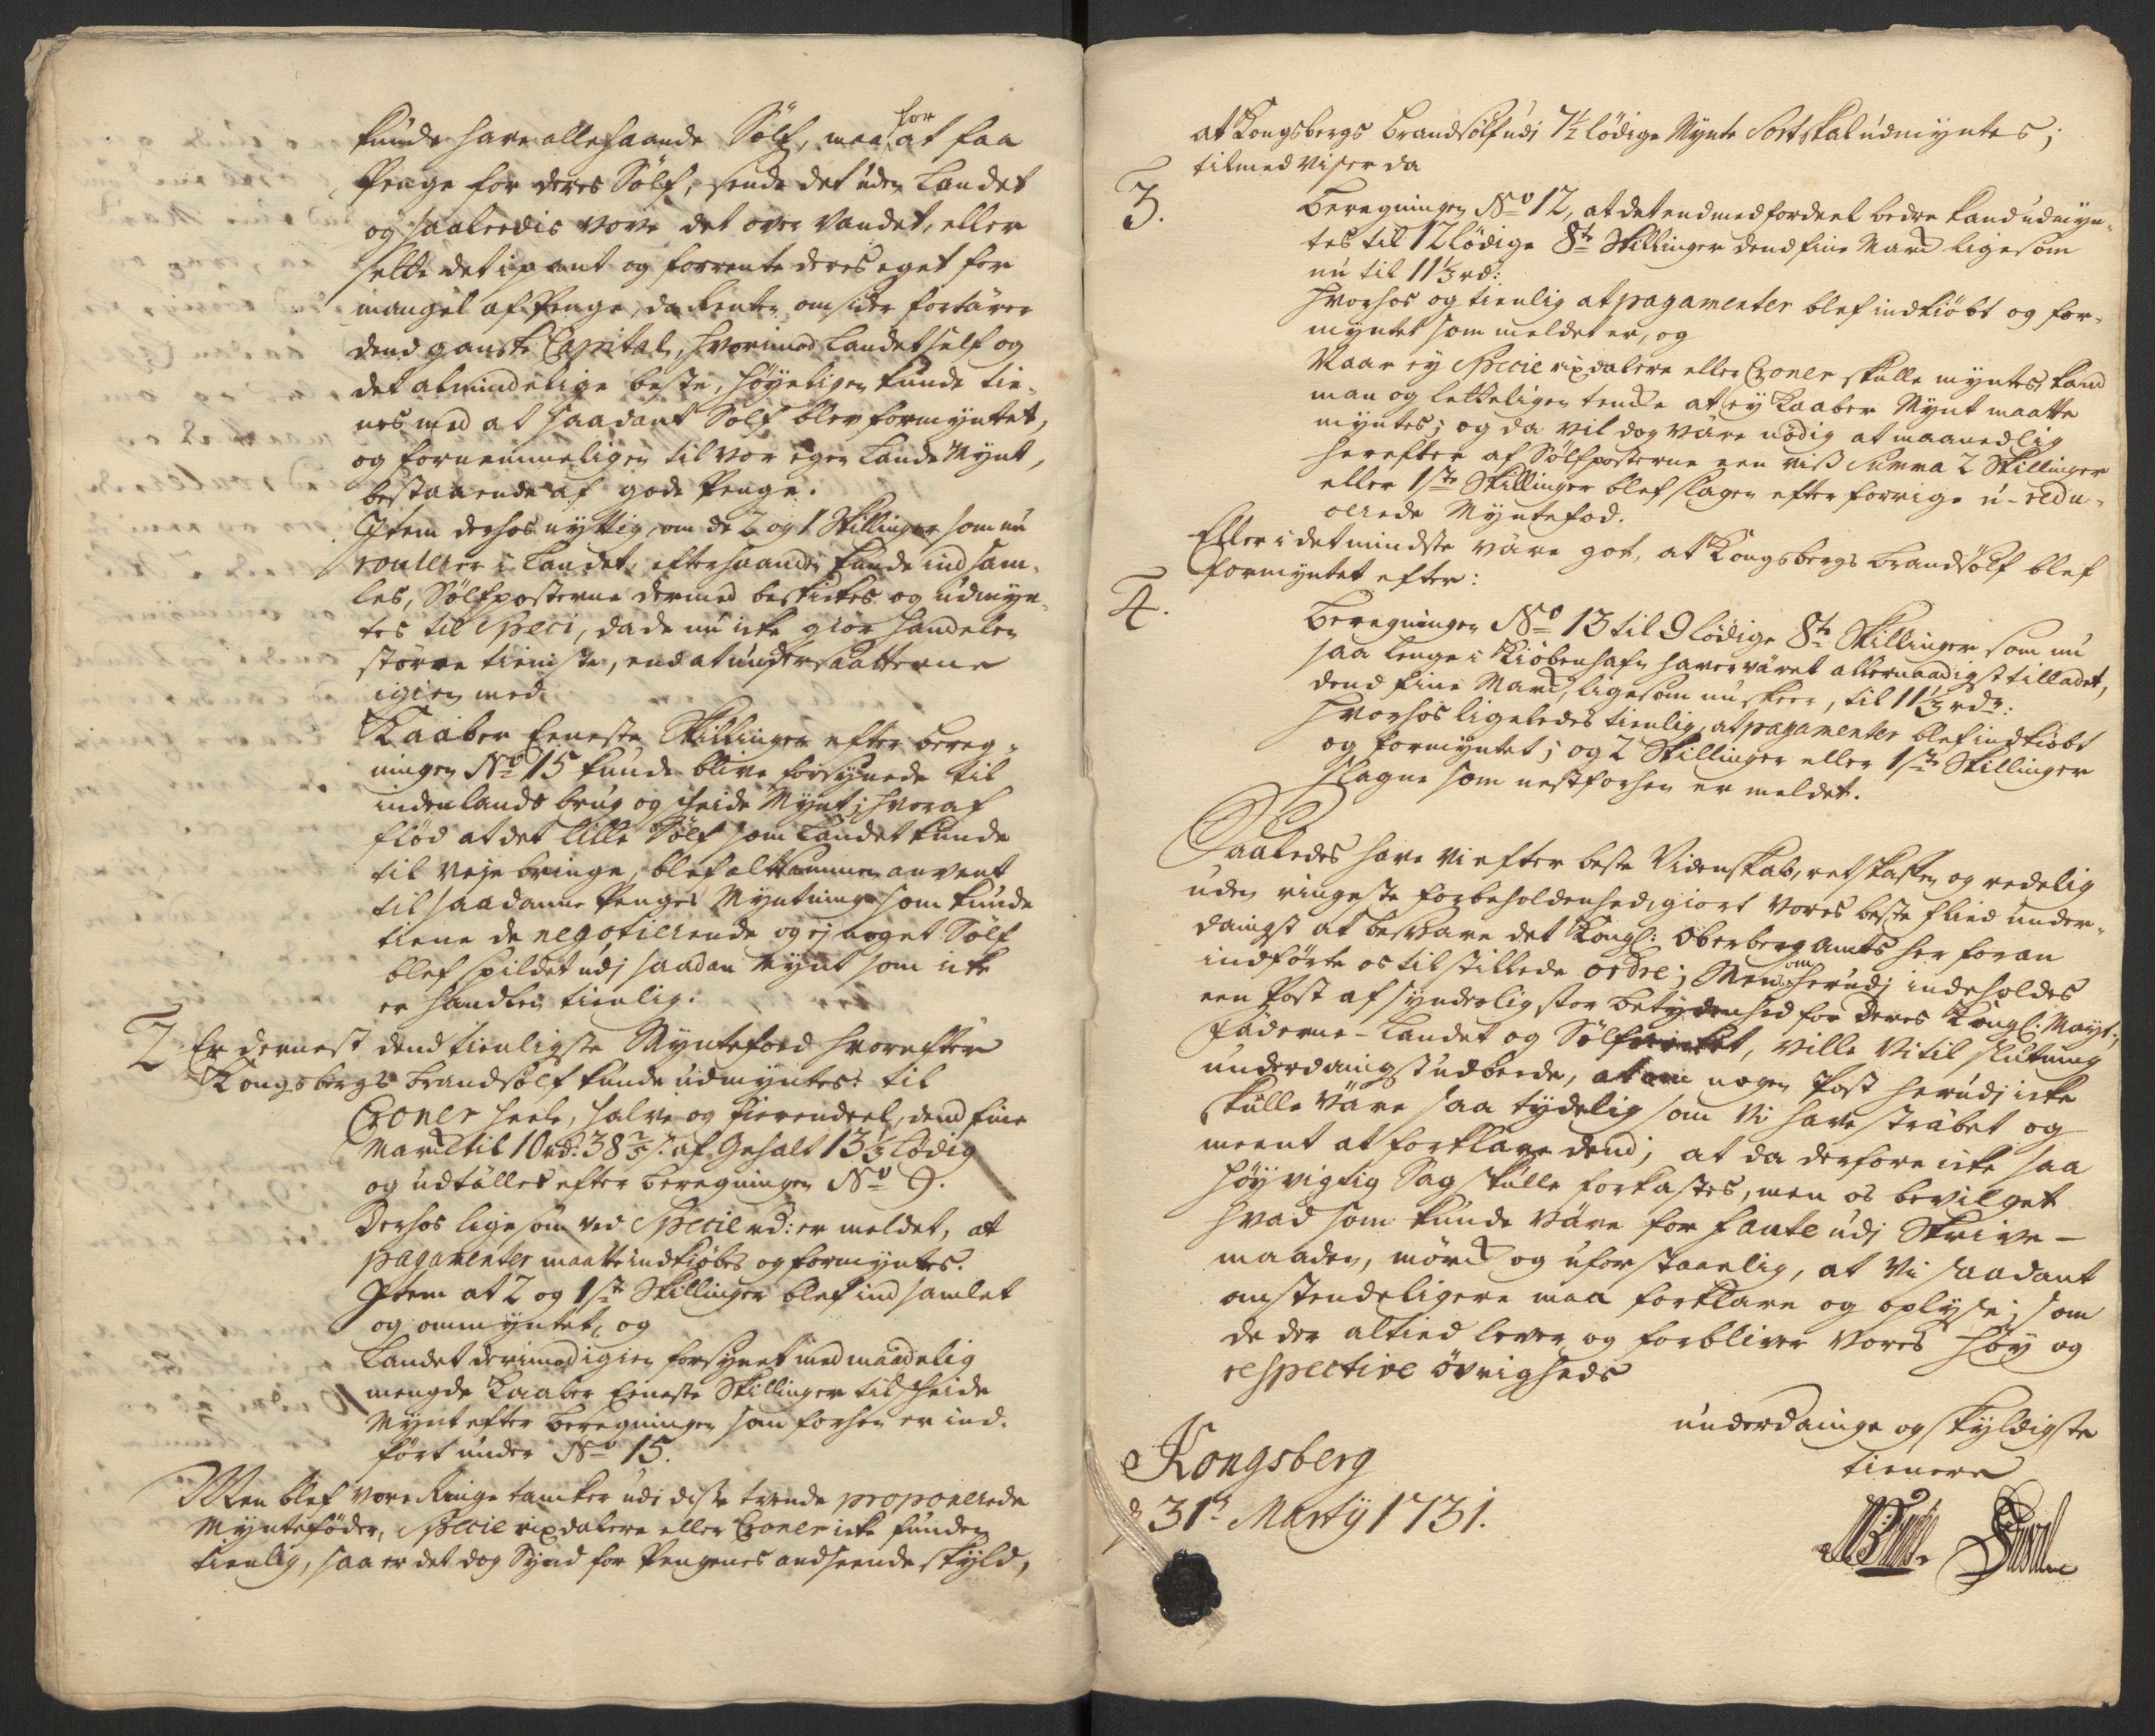 kunde have allehaande Sølf, maa for at faa
Penge for deres Sølf, sende det uden Landet
og saaleedis vove det over Vandet, eller
sette det i pant og forrente deres eget for
mangel af Penge, da Renten omsider fortærer
dend ganske Capital, hvorimod Landet self og
det almindelige beste, høyeligen kunde tie-
nes med at saadant Sølf blev formyntet,
og fornemmeligen til vor egen Lands Mynt,
bestaaende af gode Penge.
Item derhos nyttig om de 2 og 1 Skillinger som nu
roulerer i Landet, efterhaanden kunde indsam-
les, Sølfposterne dermed beskickes og udmyn-
tes til Speci, da de nu icke giør handelen
større tieniste, end at undersaatterne
igien med
Kaaber Eeneste Skillinger efter bereg-
ningen No 15 kunde blive forsynede til
indenlands brug og skeide Mynt; hvoraf
flød at det lille Sølf som Landet kunde
til veje bringe, blef altsammen anvent
til saadanne Penges Myntning som kunde
tiene de negotierende og ej noget Sølf
blef spildet udj saadan Mynt som icke
er handlen tienlig.
2 Er dernest dend tienligste Myntefoed hvorefter
Kongsbergs brandsølf kunde udmyntes: til
Croner heele, halve og fierendeel, dend fine
Marck til 10 rd: 38 2/5 s. af Gehalt 13 1/3 lødig
og udtællet efter beregningen No 9.
Derhos ligesom ved Specie rd: er meldet, at
pagamenter maatte indkiøbes og formyntes.
Item at 2 og 1ste Skillinger blef indsamlet
og ommyntet, og
Landet derimod igien forsynet med maadelig
mengde Kaaber Eeneste Skillinger til skeide
Mynt efter beregningen som forhen er ind-
ført under No 15.
Men blef vore Ringe tancker udi disse tvende proponerede
Myntefødder, Specie rixdalere eller Croner icke funden
tienlig, saa er det dog Synd for Pengenes andseende skyld,
at Kongsbergs brandsølf udi 7½ lødige Mynte Sort skal udmyntes;
tilmed viser da
3. Beregningen No 12, at det end med fordeel bedre kand udmyn-
tes til 12 lødige 8te Skillinger dend fine Marck ligesom
nu til 11⅓ rd:
hvorhos og tienlig at pagamenter blef indkiøbt og for-
myntet som meldet er, og
Naar ey Specie rixdalere eller Croner skulle myntes, kand
man og letteligen tencke at ey Kaaber Mynt maatte
myntes; og da vil dog være nødig at maanedlig
herefter af Sølfposterne een viss Summa 2 Skillinger
eller 1ste Skillinger blef slagen efter forrige u-redu-
cerede Myntefod.
Eller i det mindste være got, at Kongsbergs brandsølf blef
formyntet efter:
4. Beregningen No 13 til 9 lødige 8te Skillinger som nu
saa lenge i Kiøbenhafn haver været allernaadigst tilladet,
dend fine Marck, ligesom nu skeer, til 11⅓ rdr:
hvorhos ligeledes tienlig, at pagamenter blef indkiøbt
og formyntet; og 2 Skillinger eller 1ste Skillinger
slagne som nestforhen er meldet.
Saaledes have vi efter beste Videnskab, retskaffen og redelig
uden ringeste forbeholdenhed, giort vores beste flied under-
danigst at besvare det Kongl: Oberberg Amts her foran
indførte os tilstillede ordre; Men som herudj indeholdes
een Post af synderlig stor betydenhed for Deres Kongl: Mayt:,
Fæderne-Landet og Sølfvercket, ville Vi til slutning
underdanigst udbeede, at om nogen Post herudj icke
skulle være saa tydelig som Vi have stræbet og
meent at forklare dend; at da derfore icke saa
høy vigtig Sag skulle forkastes, men os bevilget
hvad som kunde være for faute udj Skrive-
maaden, mørck og uforstaaelig, at Vi saadant
anstendeligere maa forklare og oplyse; som
de der altied lever og forbliver Vores høy og
respective øvrigheds
underdanige og skyldigste
tienere
Kongsberg
d 31te Martij 1731.